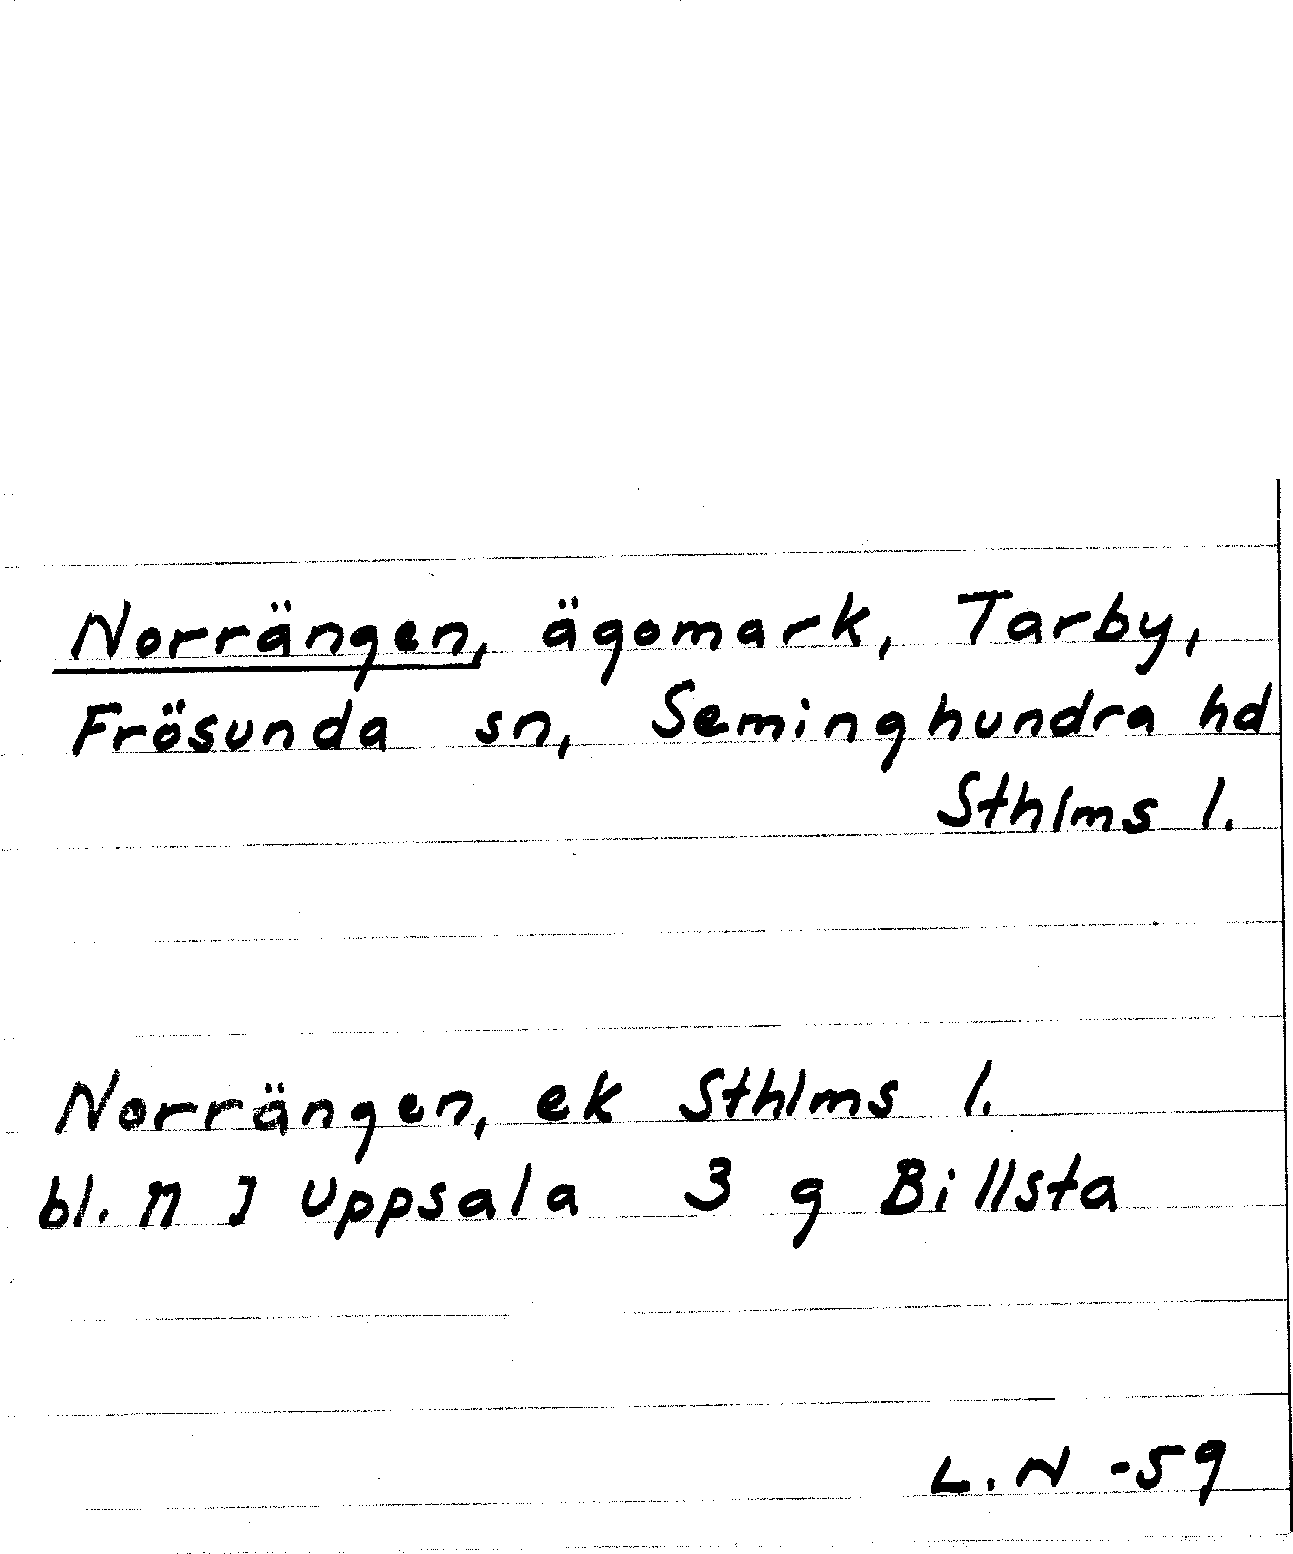 Norrängen, ägomark, Tarby,
Frösunda sn, Seminghundra hd
Sthlms l.
Norrängen, ek Sthlms l.
bl. 11 J Uppsala 3 g Billsta
L.N -59